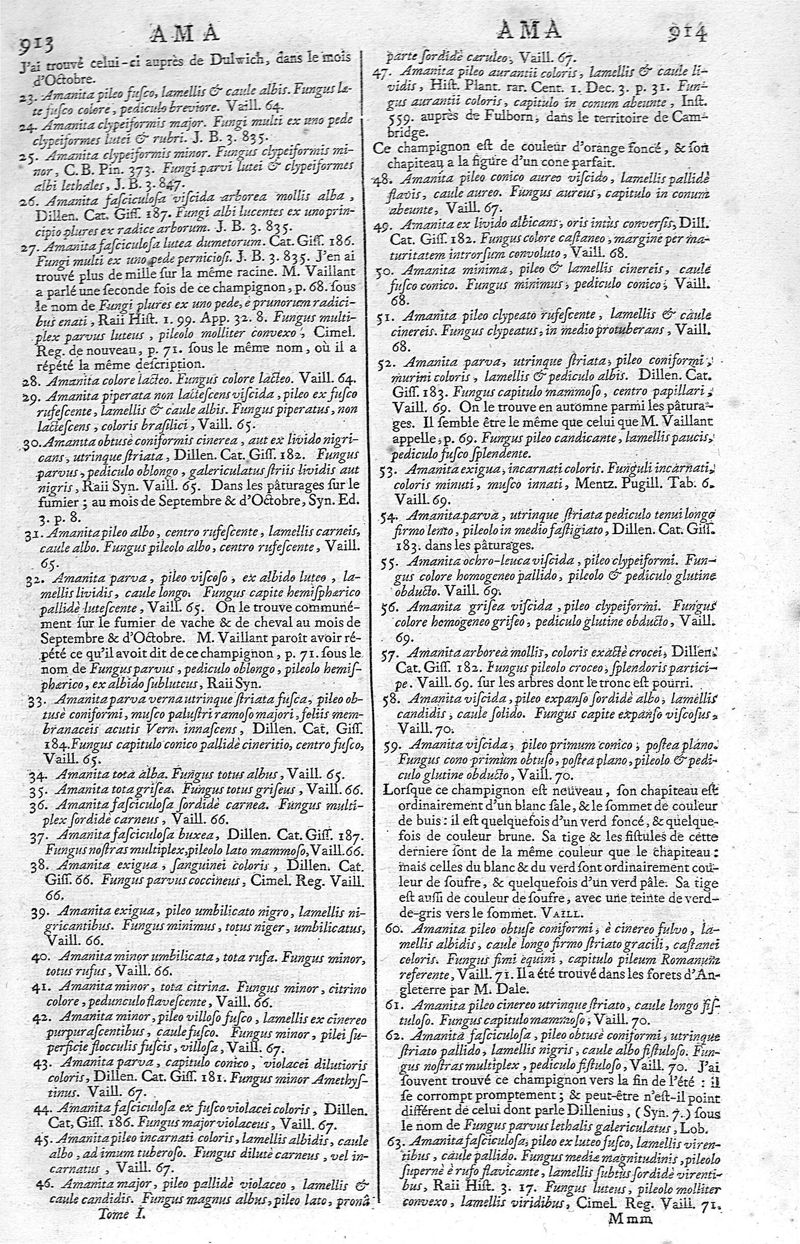 913 AMA
J'ai trouvé celui-ci auprès de Dulwich, dans le mois
d'Octobre.
23. Amanita pileo fusco, lamellis & caule albis. Fungus la-
te fusco colore, pediculo breviore. Vaill. 64.
24. Amanita clypeiformis major. Fungi multi ex uno pede
clypeiformes lutei & rubri. J. B. 3. 835.
25. Amanita clypeiformis minor. Fungus clypeiformis mi-
nor, C. B. Pin. 373. Fungi parvi lutei & clypeiformes
albi lethales, J. B. 3. 847.
26. Amanita fasciculosa viscida arborea mollis alba,
Dillen. Cat. Giss. 187. Fungi albi lucentes ex uno prin-
cipio plures ex radice arborum. J. B. 3. 835.
27. Amanita fasciculosa lutea dumetorum. Cat. Giss. 186.
Fungi multi ex uno pede perniciosi. J. B. 3. 835. J'en ai
trouvé plus de mille sur la même racine. M. Vaillant
a parlé une seconde fois de ce champignon, p. 68. sous
le nom de Fungi plures ex uno pede, e prunorum radici-
bus enati, Raii Hist. 1. 99. App. 32. 8. Fungus multi-
plex parvus luteus, pileolo molliter convexo, Cimel.
Reg. de nouveau, p. 71. sous le même nom, où il a
répété la même description.
28. Amanita colore lacteo. Fungus colore lacteo. Vaill. 64.
29. Amanita piperata non lactescens viscida, pileo ex fusco
rufescente, lamellis & caule albis. Fungus piperatus, non
lactescens, coloris brasilici, Vaill. 65.
30. Amanita obtusè coniformis cinerea, aut ex livido nigri-
cans, utrinque striata, Dillen. Cat. Giss. 182. Fungus
parvus, pediculo oblongo, galericulatus striis lividis aut
nigris, Raii Syn. Vaill. 65. Dans les pâturages sur le
fumier; au mois de Septembre & d'Octobre, Syn. Ed.
3. p. 8.
31. Amanita pileo albo, centro rufescente, lamellis carneis,
caule albo. Fungus pileolo albo, centro rufescente, Vaill.
65.
32. Amanita parva, pileo viscoso, ex albido luteo, la-
mellis lividis, caule longo. Fungus capite hemisphærico
pallidè lutescente, Vaill. 65. On le trouve communé-
ment sur le fumier de vache & de cheval au mois de
Septembre & d'Octobre. M. Vaillant paroît avoir ré-
pété ce qu'il avoit dit de ce champignon, p. 71. sous le
nom de Fungus parvus, pediculo oblongo, pileolo hemis-
phærico, ex albido subluteus, Raii Syn.
33. Amanita parva verna utrinque striata fusca, pileo ob-
tusè coniformi, musco palustri ramoso majori, foliis mem-
branaceis acutis Vern. innascens, Dillen. Cat. Giss.
184. Fungus capitulo conico pallidè cineritio, centro fusco,
Vaill. 65.
34. Amanita tota alba. Fungus totus albus, Vaill. 65.
35. Amanita tota grisea. Fungus totus griseus, Vaill. 66.
36. Amanita fasciculosa sordidè carnea. Fungus multi-
plex sordidè carneus, Vaill. 66.
37. Amanita fasciculosa buxea, Dillen. Cat. Giss. 187.
Fungus nostras multiplex, pileolo lato mammoso, Vaill. 66.
38. Amanita exigua, sanguinei coloris, Dillen. Cat.
Giss. 66. Fungus parvus coccineus, Cimel. Reg. Vaill.
66.
39. Amanita exigua, pileo umbilicato nigro, lamellis ni-
gricantibus. Fungus minimus, totus niger, umbilicatus,
Vaill. 66.
40. Amanita minor umbilicata, tota rufa. Fungus minor,
totus rufus, Vaill. 66.
41. Amanita minor, tota citrina. Fungus minor, citrino
colore, pedunculo flavescente, Vaill. 66.
42. Amanita minor, pileo villoso fusco, lamellis ex cinereo
purpurascentibus, caule fusco. Fungus minor, pilei su-
perficie flocculis fuscis, villosa, Vaill. 67.
43. Amanita parva, capitulo conico, violacei dilutioris
coloris, Dillen. Cat. Giss. 181. Fungus minor Amethys-
tinus. Vaill. 67.
44. Amanita fasciculosa ex fusco violacei coloris, Dillen.
Cat, Giss. 186. Fungus major violaceus, Vaill. 67.
45. Amanita pileo incarnati coloris, lamellis albidis, caule
albo, ad imum tuberoso. Fungus dilutè carneus, vel in-
carnatus, Vaill. 67.
46. Amanita major, pileo pallidè violaceo, lamellis &
caule candidis. Fungus magnus albus, pileo lato, pronâ
Tome I.
AMA 914
parte sordidè cæruleo, Vaill. 67.
47. Amanita pileo aurantii coloris, lamellis & caule li-
vidis, Hist. Plant. rar. Cent. 1. Dec. 3. p. 31. Fun-
gus aurantii coloris, capitulo in conum abeunte, Inst.
559. auprès de Fulborn, dans le territoire de Cam-
bridge.
Ce champignon est de couleur d'orange foncé, & son
chapiteau a la figure d'un cone parfait.
48. Amanita pileo conico aureo viscido, lamellis pallidè
flavis, caule aureo. Fungus aureus, capitulo in conum
abeunte, Vaill. 67.
49. Amanita ex livido albicans, oris intùs conversis, Dill.
Cat. Giss. 182. Fungus colore castaneo, margine per ma-
turitatem introrsum convoluto, Vaill. 68.
50. Amanita minima, pileo & lamellis cinereis, caule
fusco conico. Fungus minimus, pediculo conico, Vaill.
68.
51. Amanita pileo clypeato rufescente, lamellis & caule
cinereis. Fungus clypeatus, in medio protuberans, Vaill.
68.
52. Amanita parva, utrinque striata, pileo coniformi,
murini coloris, lamellis & pediculo albis. Dillen. Cat.
Giss. 183. Fungus capitulo mammoso, centro papillari,
Vaill. 69. On le trouve en automne parmi les pâtura-
ges. Il semble être le même que celui que M. Vaillant
appelle, p. 69. Fungus pileo candicante, lamellis paucis,
pediculo fusco splendente.
53. Amanita exigua, incarnati coloris. Funguli incarnati,
coloris minuti, musco innati, Mentz. Pugill. Tab. 6.
Vaill. 69.
54. Amanita parva, utrinque striata pediculo tenui longo
firmo lento, pileolo in medio fastigiato, Dillen. Cat. Giss.
183. dans les pâturages.
55. Amanita ochro-leuca viscida, pileo clypeiformi. Fun-
gus colore homogeneo pallido, pileolo & pediculo glutine
obducto. Vaill. 69.
56. Amanita grisea viscida, pileo clypeiformi. Fungus
colore homogeneo griseo, pediculo glutine obducto, Vaill.
69.
57. Amanita arborea mollis, coloris exactè crocei, Dillen.
Cat. Giss. 182. Fungus pileolo croceo, splendoris partici-
pe. Vaill. 69. sur les arbres dont le tronc est pourri.
58. Amanita viscida, pileo expanso sordidè albo, lamellis
candidis, caule solido. Fungus capite expanso viscosus,
Vaill. 70.
59. Amanita viscida, pileo primum conico, postea plano.
Fungus cono primum obtuso, postea plano, pileolo & pedi-
culo glutine obducto, Vaill. 70.
Lorsque ce champignon est nouveau, son chapiteau est
ordinairement d'un blanc sale, & le sommet de couleur
de buis: il est quelquefois d'un verd foncé, & quelque-
fois de couleur brune. Sa tige & les fistules de cette
derniere sont de la même couleur que le chapiteau:
mais celles du blanc & du verd sont ordinairement cou-
leur de soufre, & quelquefois d'un verd pâle. Sa tige
est aussi de couleur de soufre, avec une teinte de verd-
de-gris vers le sommet. VAILL.
60. Amanita pileo obtuse coniformi, è cinereo fulvo, la-
mellis albidis, caule longo firmo striato gracili, castanei
coloris. Fungus fimi equini, capitulo pileum Romanum
referente, Vaill. 71. Il a été trouvé dans les forets d'An-
gleterre par M. Dale.
61. Amanita pileo cinereo utrinque striato, caule longo fis-
tuloso. Fungus capitulo mammoso, Vaill. 70.
62. Amanita fasciculosa, pileo obtusè coniformi, utrinque
striato pallido, lamellis nigris, caule albo fistuloso. Fun-
gus nostras multiplex, pediculo fistuloso, Vaill. 70. J'ai
souvent trouvé ce champignon vers la fin de l'été: il
se corrompt promptement; & peut-être n'est-il point
différent de celui dont parle Dillenius, (Syn. 7.) sous
le nom de Fungus parvus lethalis galericulatus, Lob.
63. Amanita fasciculosa, pileo ex luteo fusco, lamellis viren-
tibus, caule pallido. Fungus mediæ magnitudinis, pileolo
supernè è rufo flavicante, lamellis subtùs sordidè virenti-
bus, Raii Hist. 3. 17. Fungus luteus, pileolo molliter
convexo, lamellis viridibus, Cimel. Reg. Vaill. 71.
Mmm